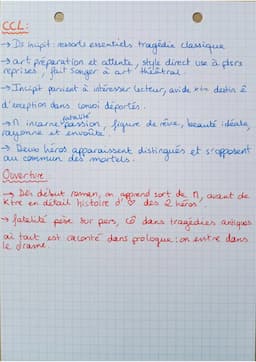 CCL:
→ Ds incipit : ressorts essentiels tragédie classique
→ art préparation et attente, style direct use à plsrs
reprises, fait songer à art théâtral.
→ Incipit parvient à intéresser lecteur, avide
d'exception dans convoi déportés.
fatalité
→ M incarne passion, figure de rêve, beauté idéale,
rayonne et envoûte.
→ Deux héros apparaissent distingués et s'opposent
au commun des mortels.
Ouverture:
→ Dès début roman, on apprend sort de M, avant de
ktre en détail histoire d'♡ des 2 héros.
→ fatalité pèse sur pers, cô dans tragédies antiques
où tout est raconté dans prologue : on entre dans
le drame.